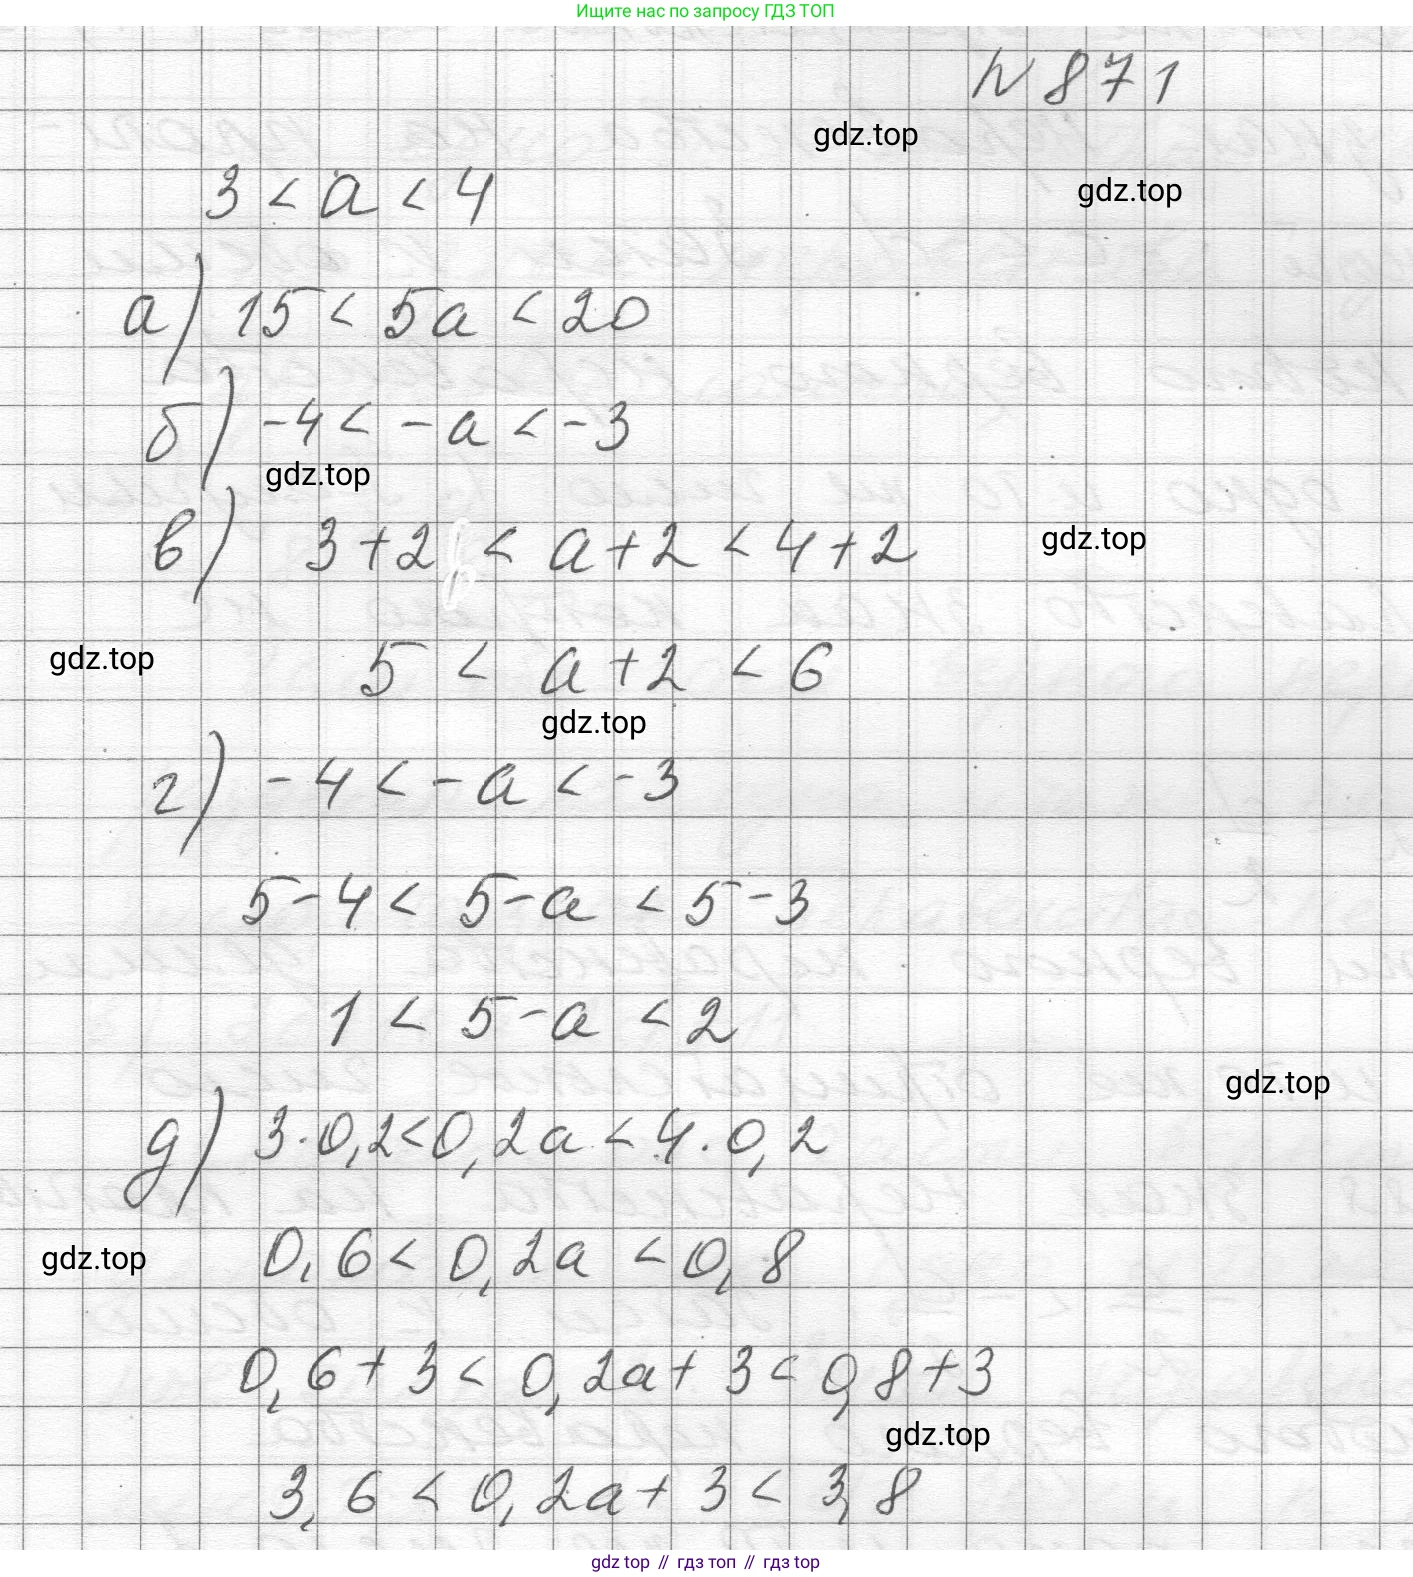 Ищите нас по запросу ГДЗ ТОП
N 871
gdz.top
gdz.top
3 < a < 4
а) 15 < 5a < 20
б) -4 < -a < -3
gdz.top
в) 3+2 < a+2 < 4+2
gdz.top
gdz.top
5 < a+2 < 6
gdz.top
г) -4 < -a < -3
5-4 < 5-a < 5-3
1 < 5-a < 2
gdz.top
д) 3·0,2<0,2a<4·0,2
gdz.top
0,6 < 0,2a < 0,8
0,6+3 < 0,2a+3 < 0,8+3
gdz.top
3,6 < 0,2a+3 < 3,8
gdz top // гдз топ // гдз top